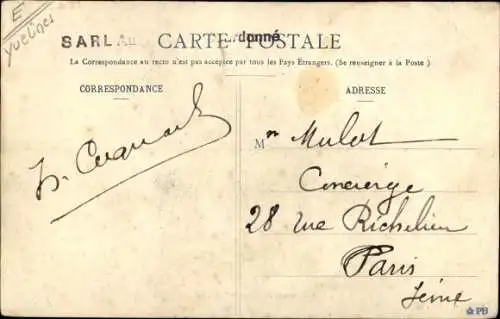 E
Yvelines
SARL Au
rdonné
CARTE POSTALE
La Correspondance au recto n'est pas acceptée par tous les Pays Étrangers. (Se renseigner à la Poste)
CORRESPONDANCE
ADRESSE
Mr Mulot
Concierge
28 rue Richelieu
Paris
Seine
PB